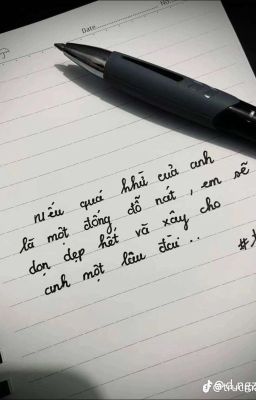 Date
No.
nếu quá khứ của anh
là một đống đổ nát, em sẽ
dọn dẹp hết và xây cho
anh một lâu đài..